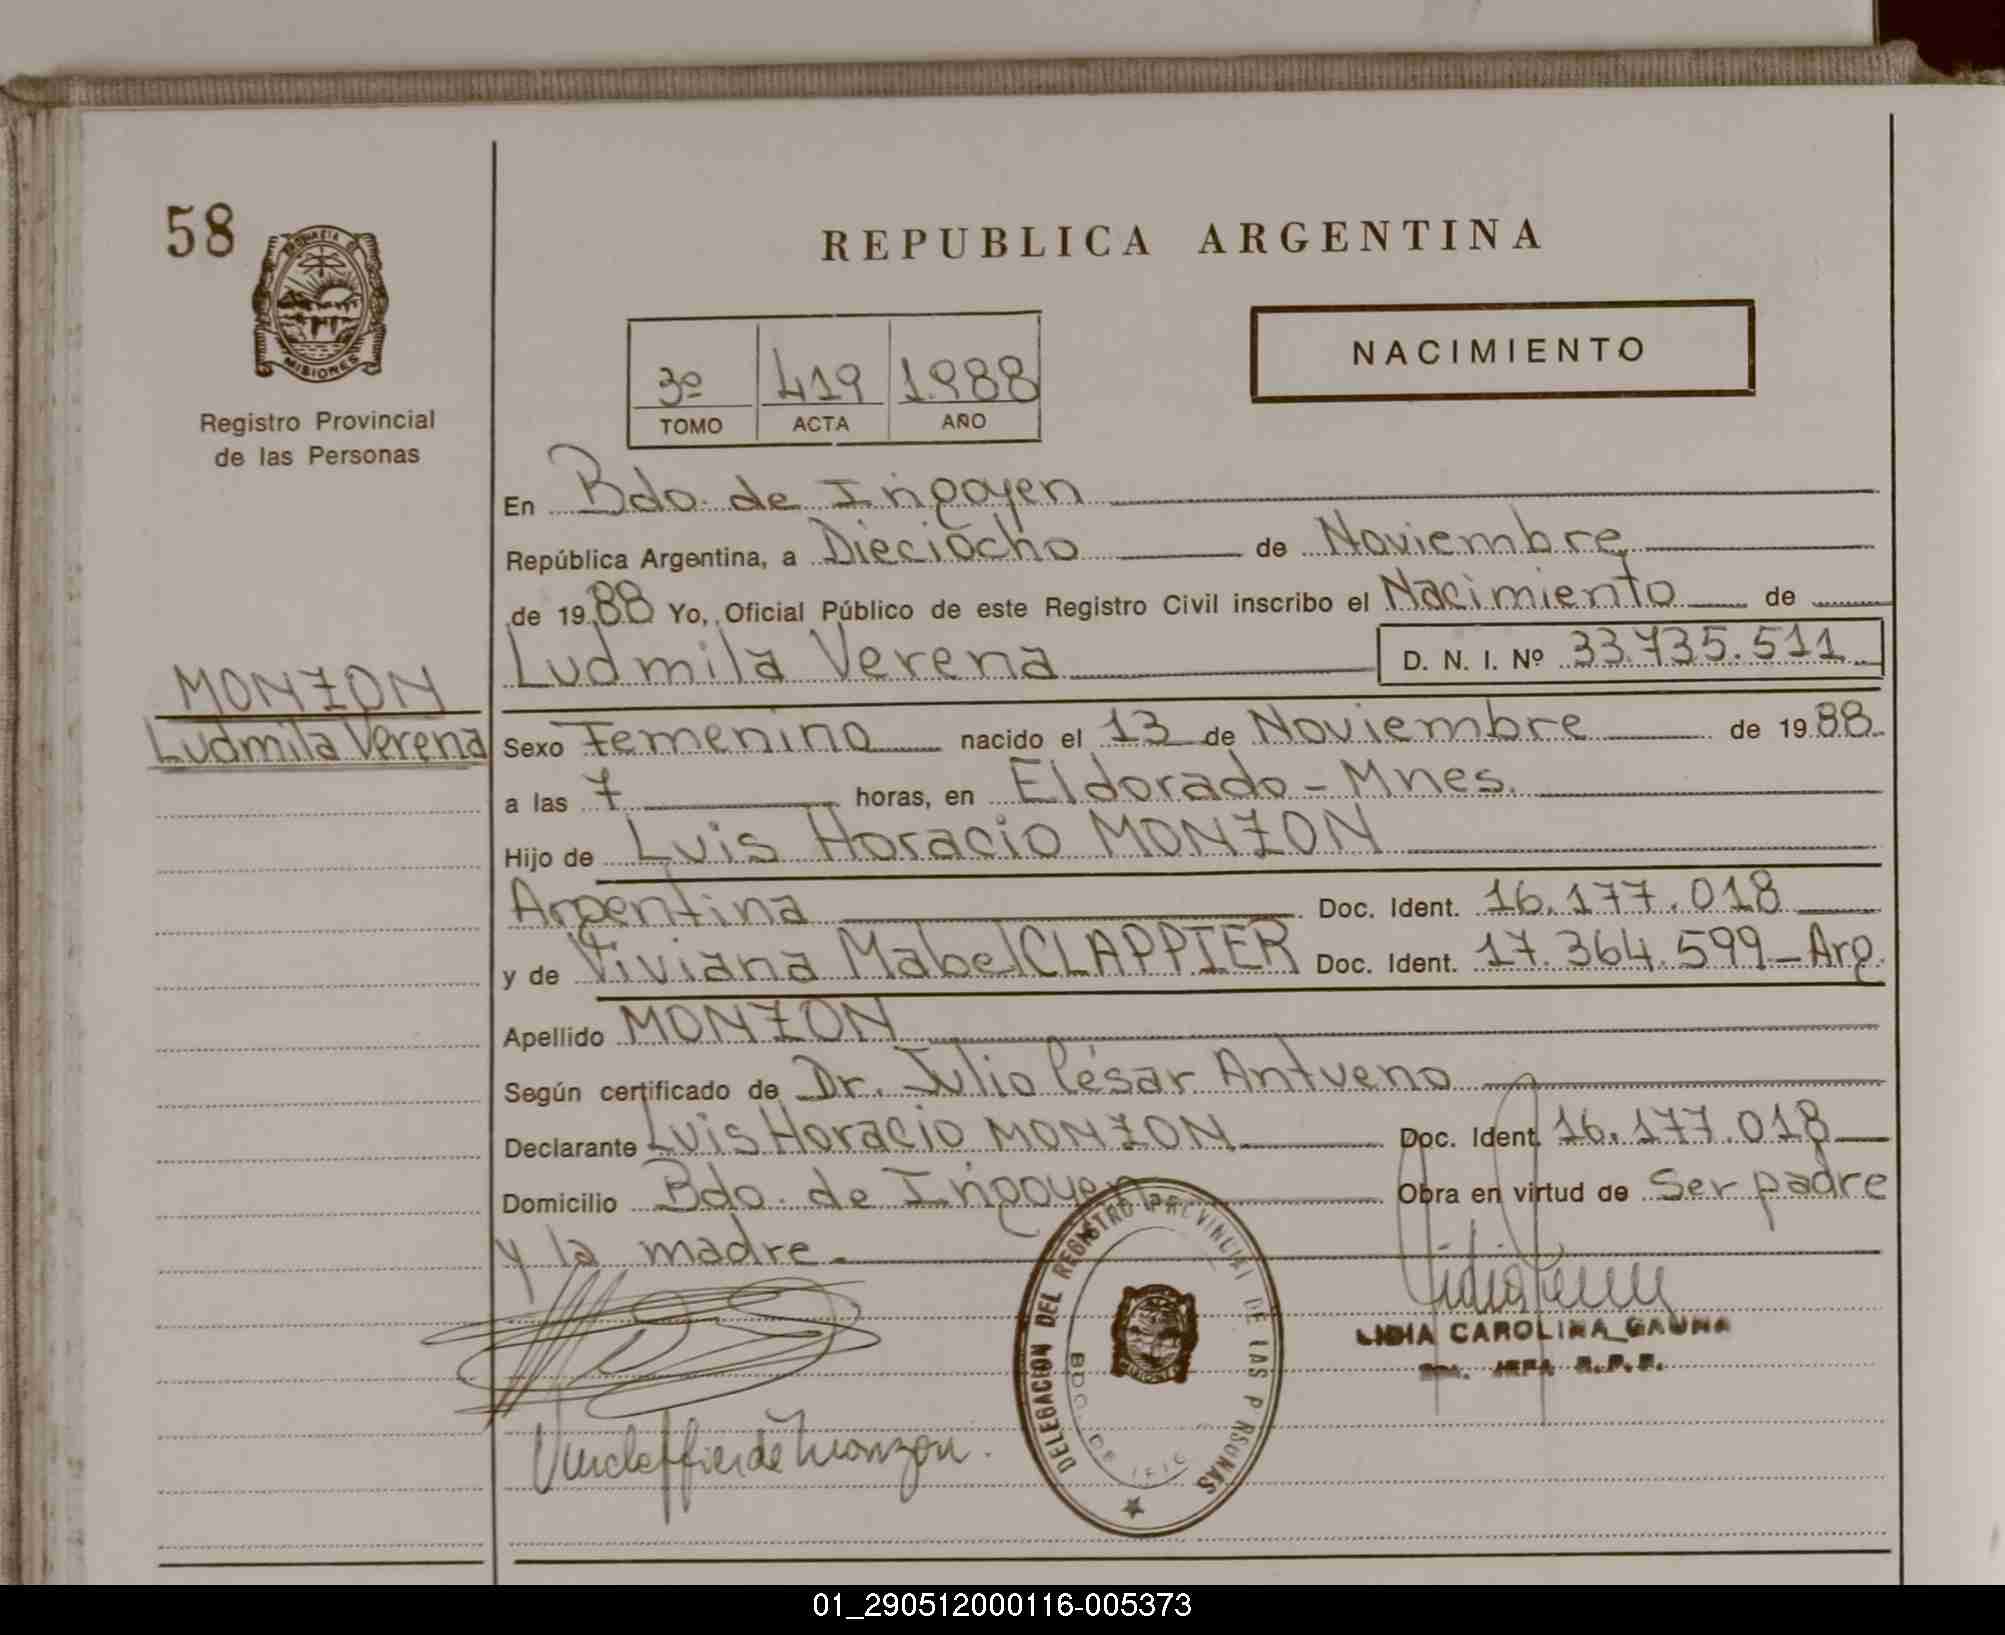 58
PROVINCIA DE
MISIONES
Registro Provincial
de las Personas
MONZON
Ludmila Verena
REPUBLICA ARGENTINA
3º 419 1.988
TOMO ACTA AÑO
NACIMIENTO
En Bdo. de Irigoyen
República Argentina, a Dieciocho de Noviembre
de 1988 Yo, Oficial Público de este Registro Civil inscribo el Nacimiento de
Ludmila Verena D. N. I. Nº 33.735.511
Sexo Femenino nacido el 13 de Noviembre de 1988
a las 7 horas, en Eldorado - Mnes.
Hijo de Luis Horacio MONZON
Argentina Doc. Ident. 16.177.018
y de Viviana Mabel CLAPPIER Doc. Ident. 17.364.599 - Arg.
Apellido MONZON
Según certificado de Dr. Julio César Antueno
Declarante Luis Horacio MONZON Doc. Ident. 16.177.018
Domicilio Bdo. de Irigoyen Obra en virtud de Ser padre
y la madre.
DELEGACION DEL REGISTRO PROVINCIAL DE LAS P RSONAS
BDO. DE
MISIONES
LIDIA CAROLINA GAUNA
JEFA R.P.P.
de Monzón.
01_290512000116-005373